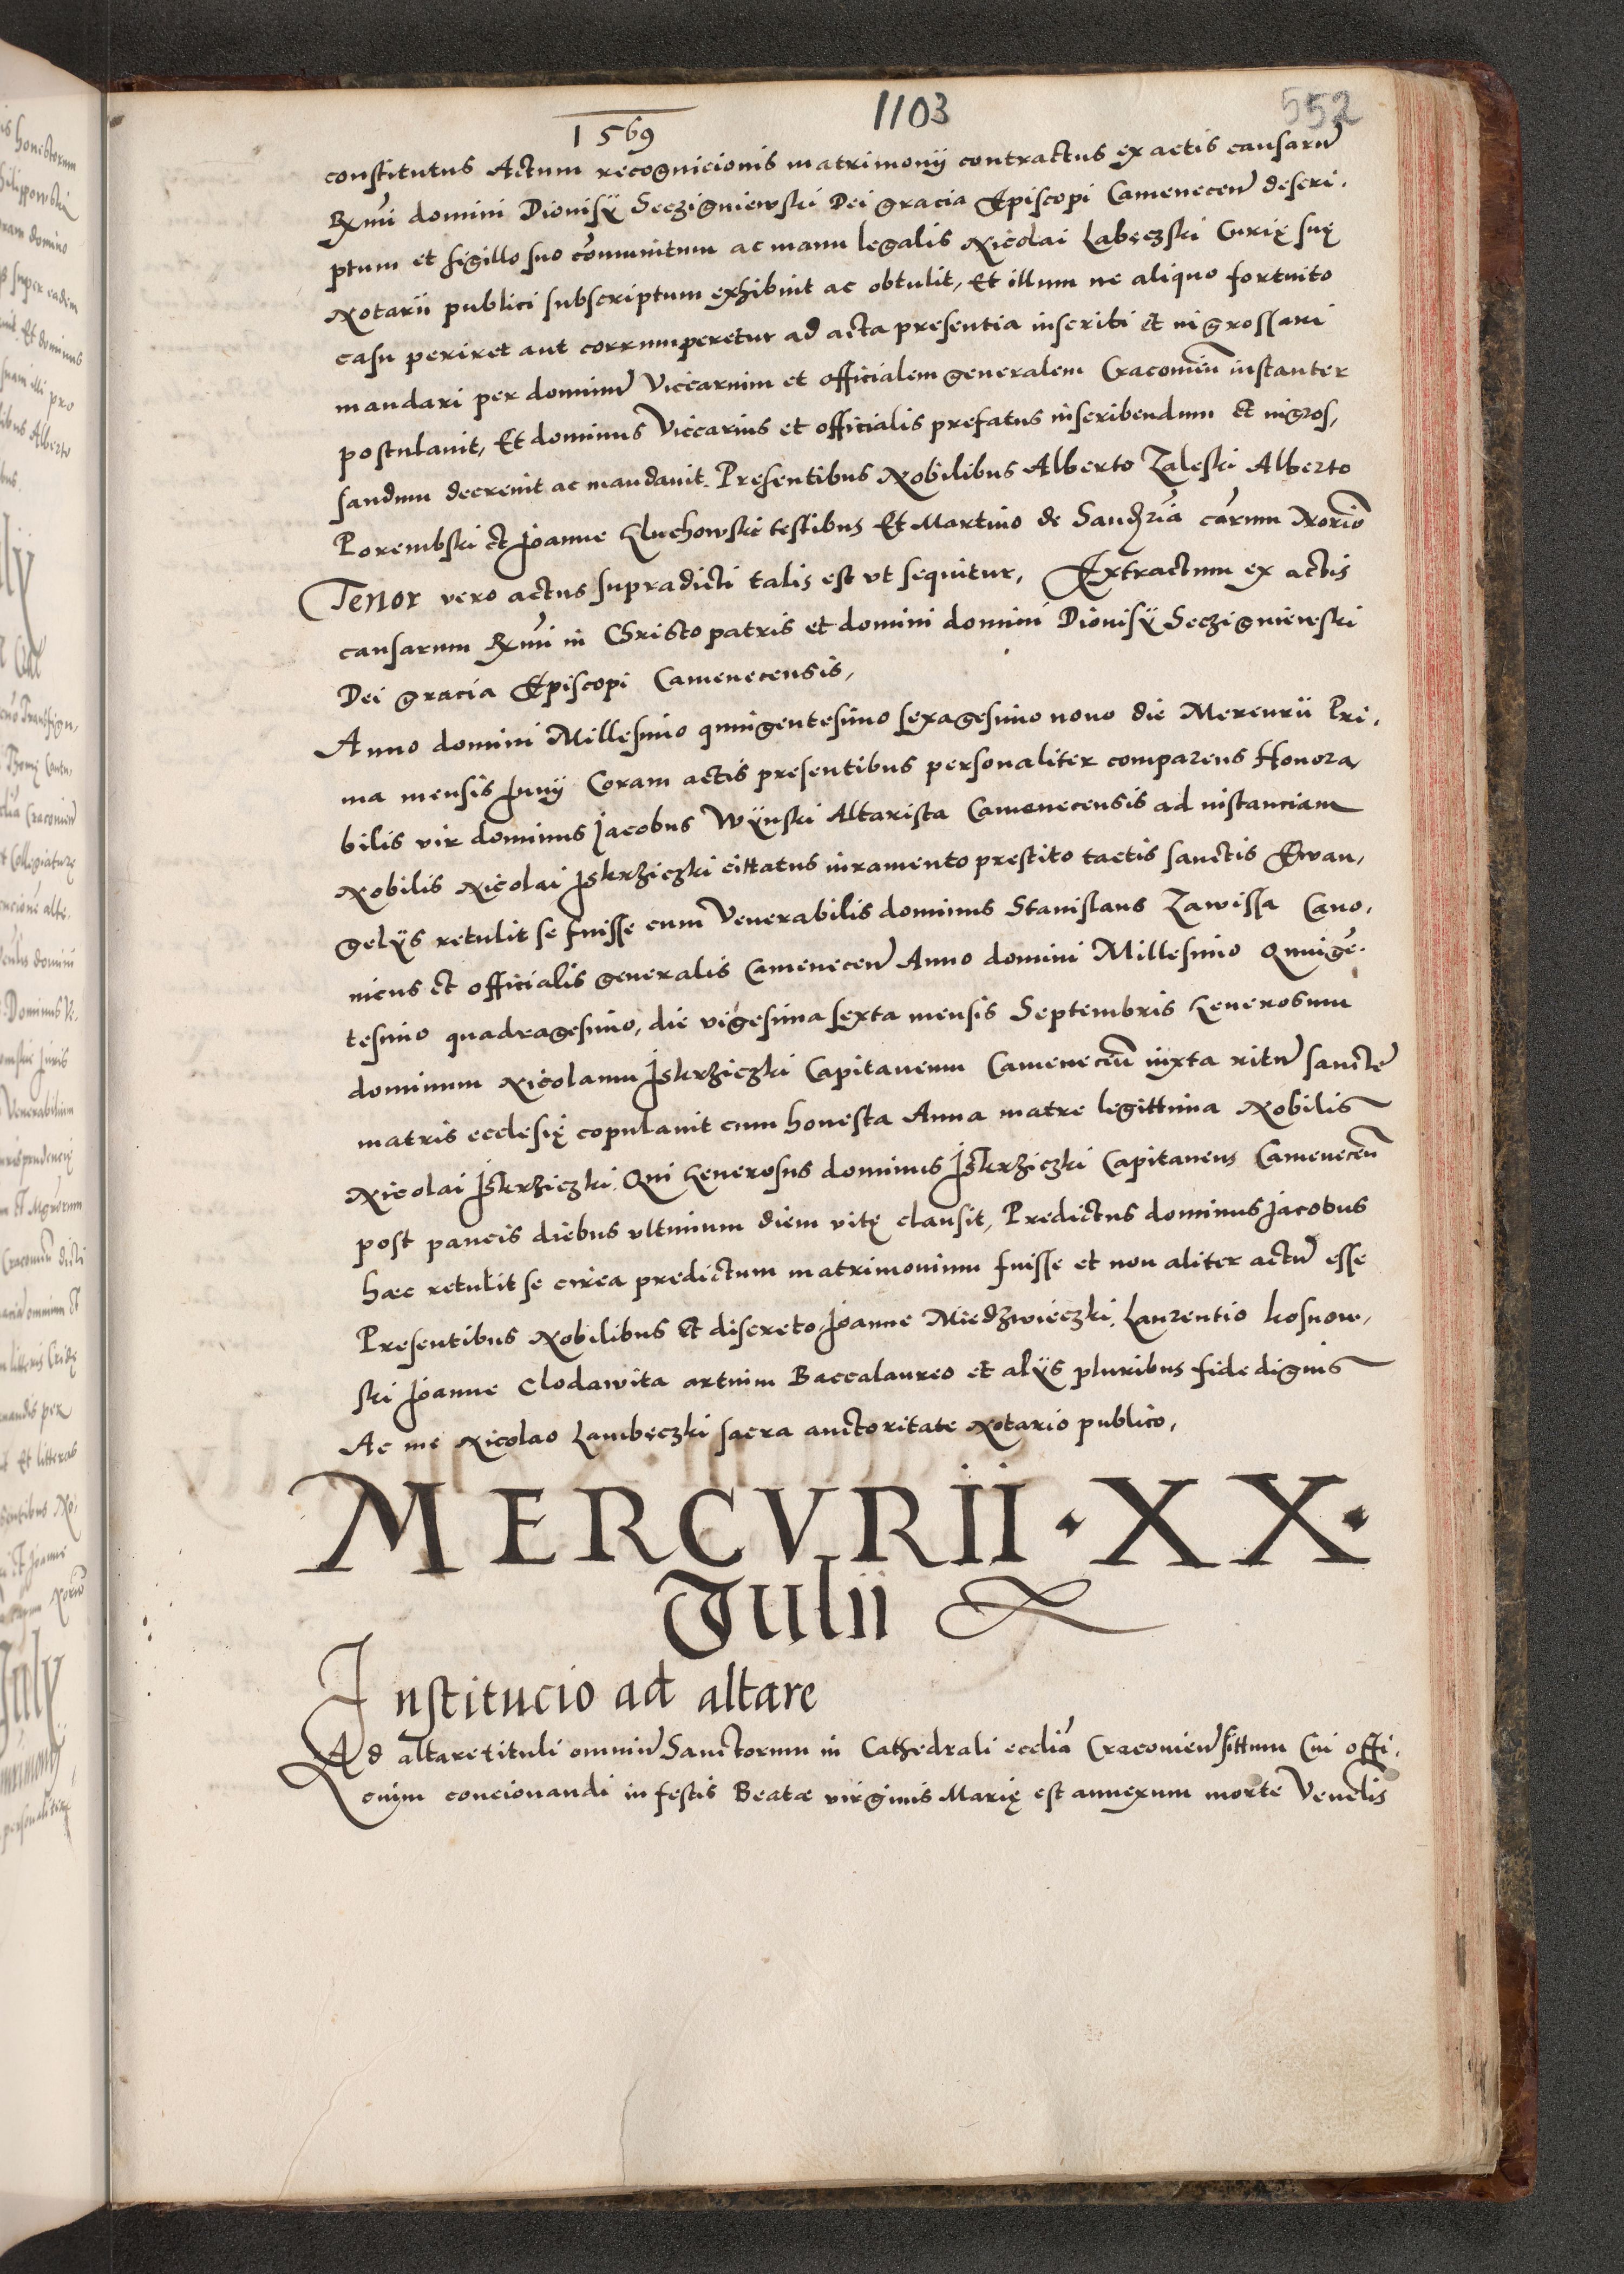 1569
1103
552
constitutus Actum recognicionis matrimonij contractus ex actis causarũ
Rx̃mi domini Dionisÿ Seczigniewski Dei gracia Episcopi Camenecen̄ descri-
ptum et sigillo suo cõmunitum ac manu legalis Nicolai Labęczski Curię suę
Notarii publici subscriptum exhibuit ac obtulit, Et illum ne aliquo fortuito
casu periret aut corrumperetur ad acta presentia inscribi et ingrossari
mandari per dominũ Viccarium et officialem generalem Cracouień instanter
postulauit, Et dominus Viccarius et officialis prefatus inscribendum et ingros,
sandum decreuit ac mandauit. Presentibus Nobilibus Alberto Zaleski Alberto
Porembski et Joanne Gluchowski testibus Et Martino de Sandʒ̃ria cãrum Norio
Tenor vero actus supradicti talis est vt sequitur, Extractum ex actis
causarum Rx̃mi in Christo patris et domini domini Dionisÿ Seczigniewski
Dei gracia Episcopi Camenecensis,
Anno domini Millesimo quingentesimo sexagesimo nono die Mercurii Pri-
ma mensis Junij Coram actis presentibus personaliter comparens Honora,
bilis vir dominus Jacobus Wÿnski Altarista Camenecensis ad instanciam
Nobilis Nicolai Jskrziczki cittatus iuramento prestito tactis sanctis Ewan,
gelÿs retulit se fuisse cum Venerabilis dominus Stanislaus Zawissa Cano,
nicus et officialis generalis Camenecen̄ Anno domini Millesimo Quingẽ-
tesimo quadragesimo, die vigesima sexta mensis Septembris Generosum
dominum Nicolaum Jskrziczki Capitaneum Camenecen̄ iuxta ritũ sanctę
matris ecclesię copulauit cum honesta Anna matre legittima Nobilis
Nicolai Jskrziczki. Qui Generosus dominus Jskrziczki Capitaneus Camenecen̄
post paucis diebus vltimum diem vitę clausit, Predictus dominus Jacobus
hæc retulit se circa predictum matrimonium fuisse et non aliter actũ esse
Presentibus Nobilibus Et discreto Joanne Miedzwieczki, Laurentio kosnow,
ski Joanne Clodawita artium Baccalaureo et alÿs pluribus fide dignis
Ac me Nicolao Lambęczki sacra auctoritate Notario publico,
MERCVRII · XX ·
Julii
Institucio ad altare
Ad altare tituli omniũ Sanctorum in Cathedrali ecclĩa Cracouien̄ sittum Cui offi-
cium concionandi in festis Beatæ virginis Marię est annexum morte Venelis